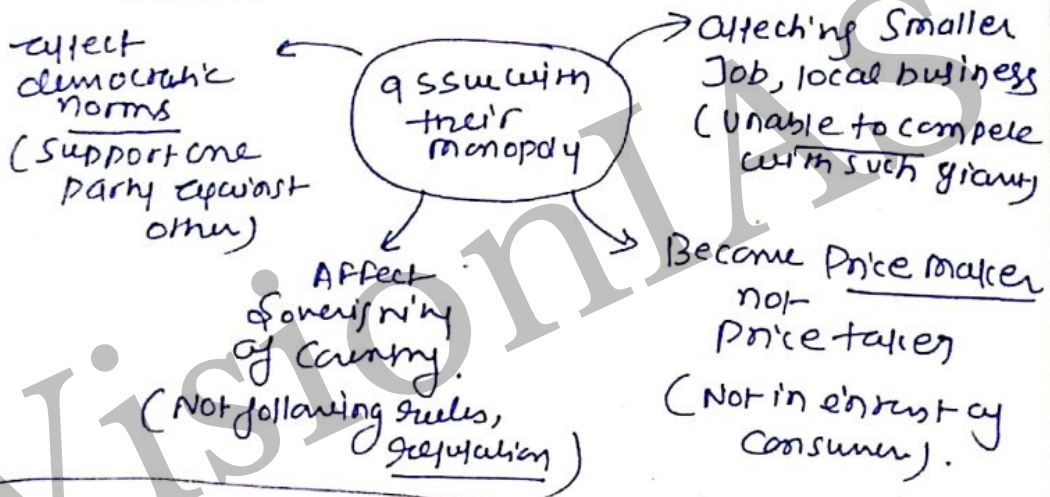 Issue with
their
monopoly
affect
democratic
norms
(support one
party against
other)
Affecting Smaller
Job, local business
(Unable to compete
with such giants)
Affect
Sovereignity
of Country.
(Not following rules,
regulation)
Become Price maker
not
Price taker
(Not in interest of
Consumer).
VisionIAS